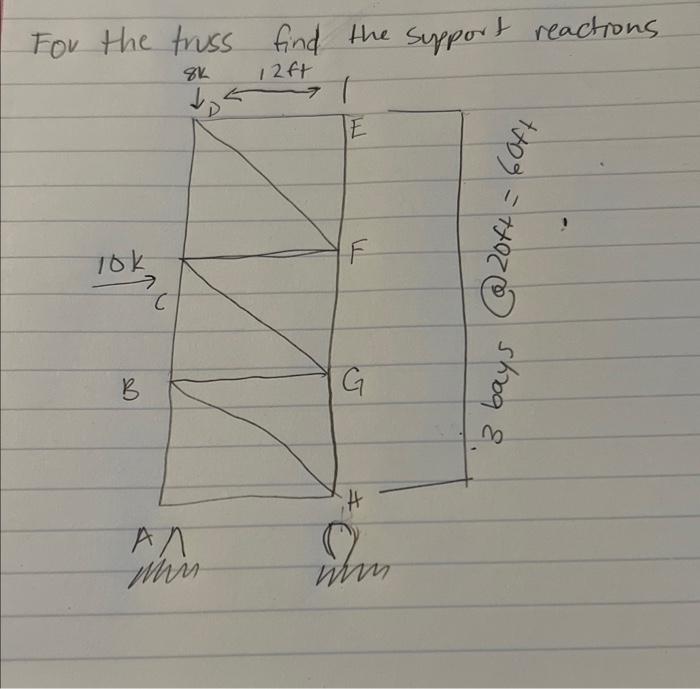 For the truss find the support reactions
8k 12ft
D
E
10k
F
C
B
G
3 bays @20ft = 60ft
H
A